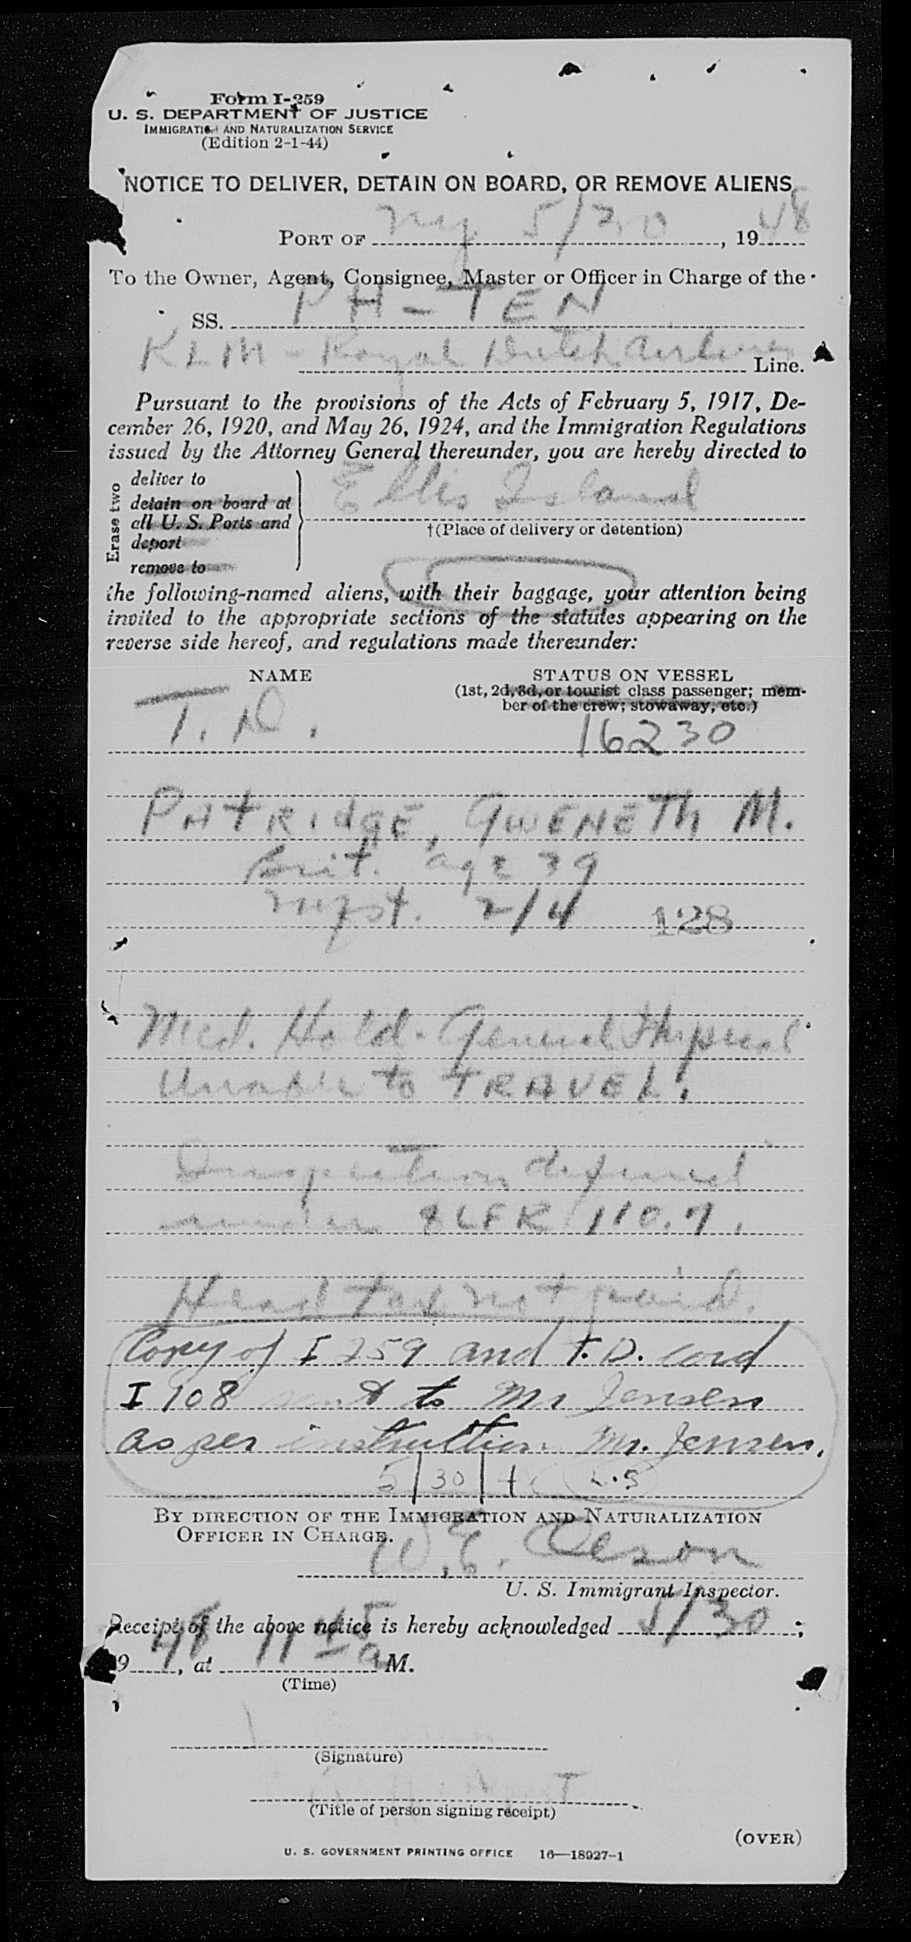 Form I-259
U. S. DEPARTMENT OF JUSTICE
IMMIGRATION AND NATURALIZATION SERVICE
(Edition 2-1-44)
NOTICE TO DELIVER, DETAIN ON BOARD, OR REMOVE ALIENS
PORT OF NY 5/30, 1948
To the Owner, Agent, Consignee, Master or Officer in Charge of the
SS. PH-TEN
KLM - Royal Dutch Airlines Line.
Pursuant to the provisions of the Acts of February 5, 1917, De-
cember 26, 1920, and May 26, 1924, and the Immigration Regulations
issued by the Attorney General thereunder, you are hereby directed to
Erase two
deliver to
detain on board at
all U. S. Ports and
deport
remove to
Ellis Island
†(Place of delivery or detention)
the following-named aliens, with their baggage, your attention being
invited to the appropriate sections of the statutes appearing on the
reverse side hereof, and regulations made thereunder:
NAME STATUS ON VESSEL
(1st, 2d, 3d, or tourist class passenger; mem-
ber of the crew; stowaway, etc.)
T. D. 16230
PATRIDGE, GWENETH M.
Brit. age 39
mfst. 2/4 128
Med. Hold. General Hospital
Unable to TRAVEL.
Inspection deferred
under 8CFR 110.7.
Head tax not paid.
Copy of I 259 and T.D. card
I 108 sent to Mr Jensen
as per instruction Mr. Jensen.
5/30/4
BY DIRECTION OF THE IMMIGRATION AND NATURALIZATION
OFFICER IN CHARGE.
W.E. Olson
U. S. Immigrant Inspector.
Receipt of the above notice is hereby acknowledged 5/30,
1948, at 11 45 a M.
(Time)
(Signature)
(Title of person signing receipt)
(OVER)
U. S. GOVERNMENT PRINTING OFFICE 16—18927-1